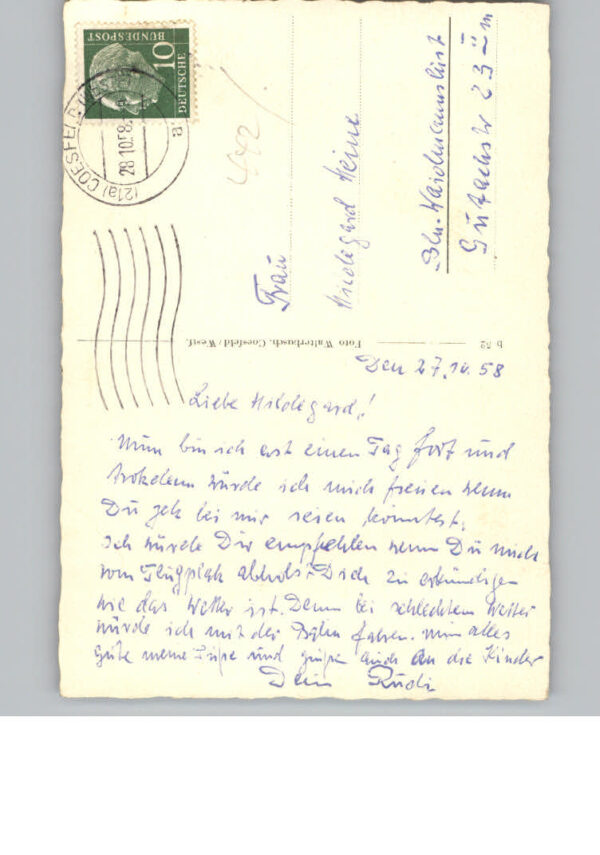 10
DEUTSCHE
BUNDESPOST
(21a) COESFELD
28.10.58
a
442
Frau
Hildegard Heine
Bln.-Waidmannslust
Gutachstr 23
Foto Walterbusch, Coesfeld/Westf.
b 52
Den 27.10.58
Liebe Hildegard!
Nun bin ich erst einen Tag fort und
trotzdem würde ich mich freuen wenn
Du jetz bei mir seien könntest.
Ich würde Dir empfehlen wenn Du mich
vom Flugplatz abholst Dich zu erkundigen
wie das Wetter ist. Denn bei schlechtem Wetter
würde ich mit der Bahn fahren. Nun alles
gute meine und grüße auch an die Kinder
Dein Rudi